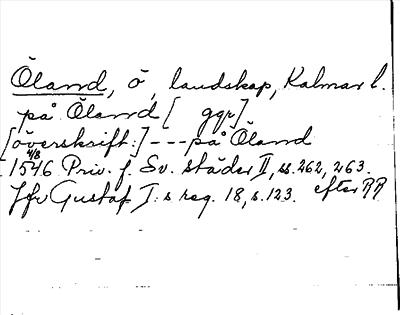 Öland, ö, landskap, Kalmar l.
på Öland [ ggr]
[överskrift:] --- på Öland
4/8
1546 Priv. f. Sv. städer II, ss. 262, 263.
Jfr Gustaf I:s reg. 18, s. 123. efter RR